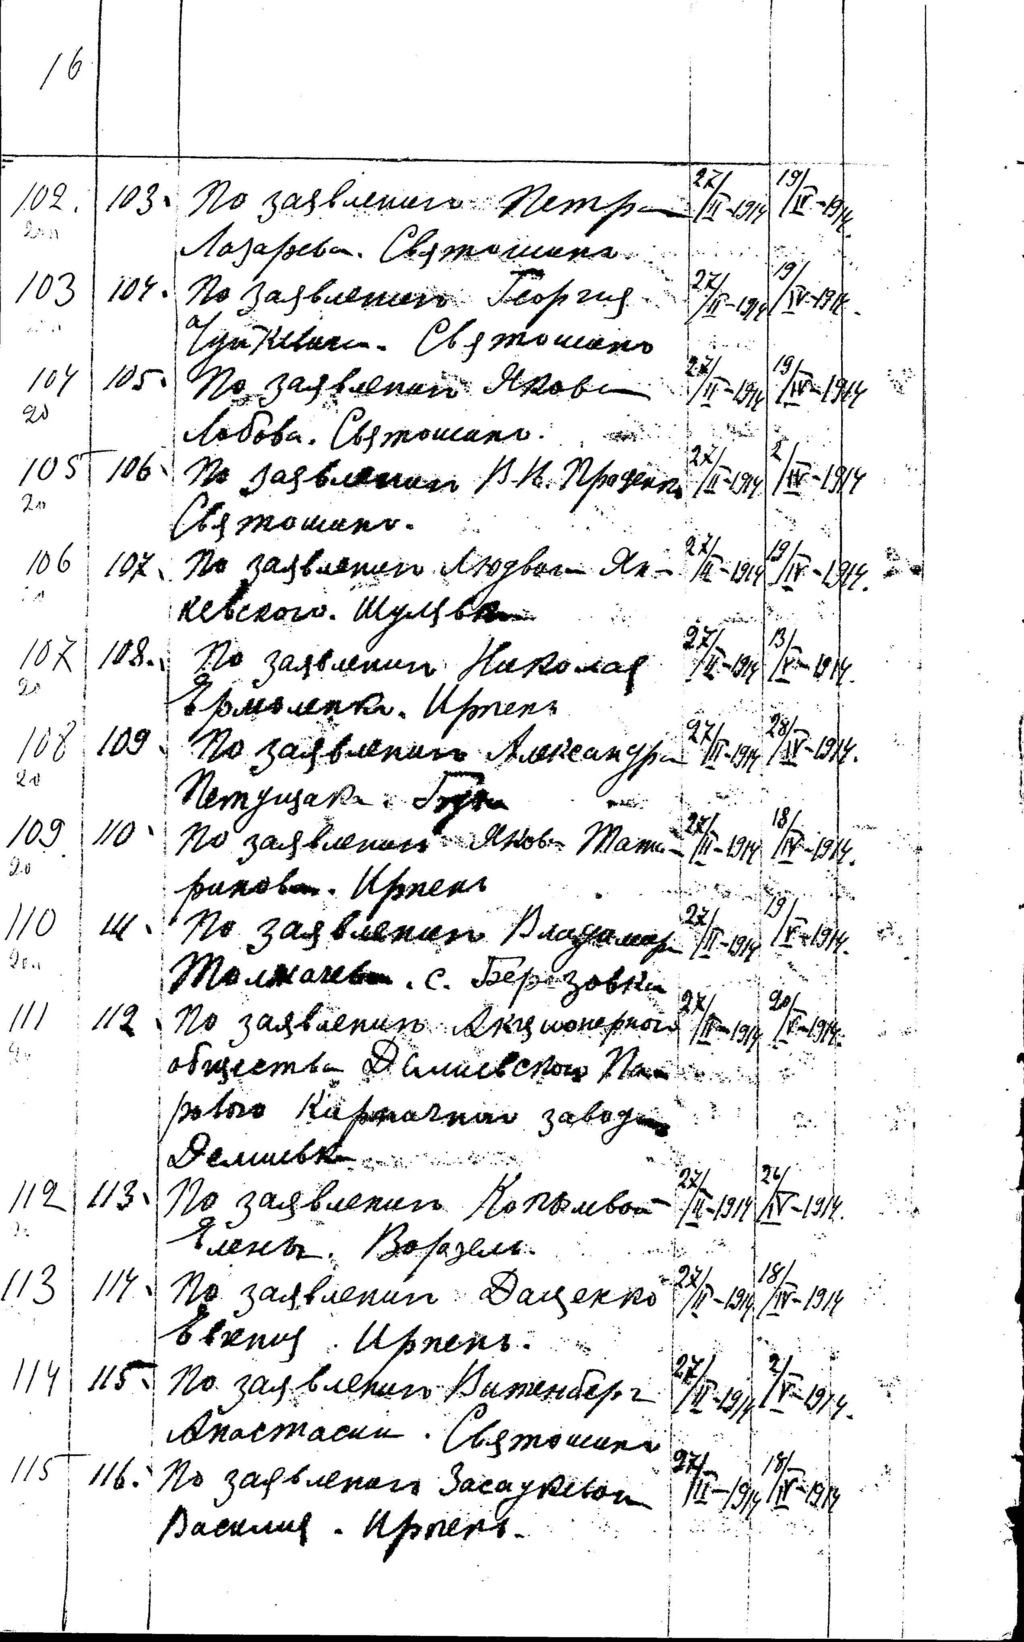 16
102. 103. По заявлению Петра 27/II-1914 19/IV-1914.
Лазарева. Святошино
103 104. По заявлению Георгия 27/II-1914 19/IV-1914.
Святошино
104 105. По заявлению Якова 27/II-1914 19/IV-1914
20
Лобова. Святошино.
105 106. По заявлению В.И. Проценко 27/II-1914 2/IV-1914
20
Святошино.
106 107. По заявлению Людвига Ян- 27/II-1914 19/IV-1914.
20
кевского. Шулявка
107 108. По заявлению Николая 27/II-1914 13/V-1914.
20
Ермоленка. Ирпень
108 109. По заявлению Александра 27/II-1914 28/IV-1914.
20
Петущака. Буча
109 110. По заявлению Якова Тата- 27/II-1914 18/IV-1914.
20
ринова. Ирпень
110 111. По заявлению Владимира 27/II-1914 19/V-1914.
20
Толмачева. с. Березовка
111 112. По заявлению Акционерного 27/II-1914 20/V-1914.
общества Демиевского Па-
рового Кирпичного завода
Демиевка
112 113. По заявлению 27/II-1914 26/IV-1914.
Елены. Ворзель.
113 114. По заявлению Даценко 27/II-1914 18/IV-1914
Евгения. Ирпень.
114 115. По заявлению Витенберг 27/II-1914 2/V-1914.
Анастасии. Святошино
115 116. По заявлению 27/II-1914 18/IV-1914
Василия. Ирпень.